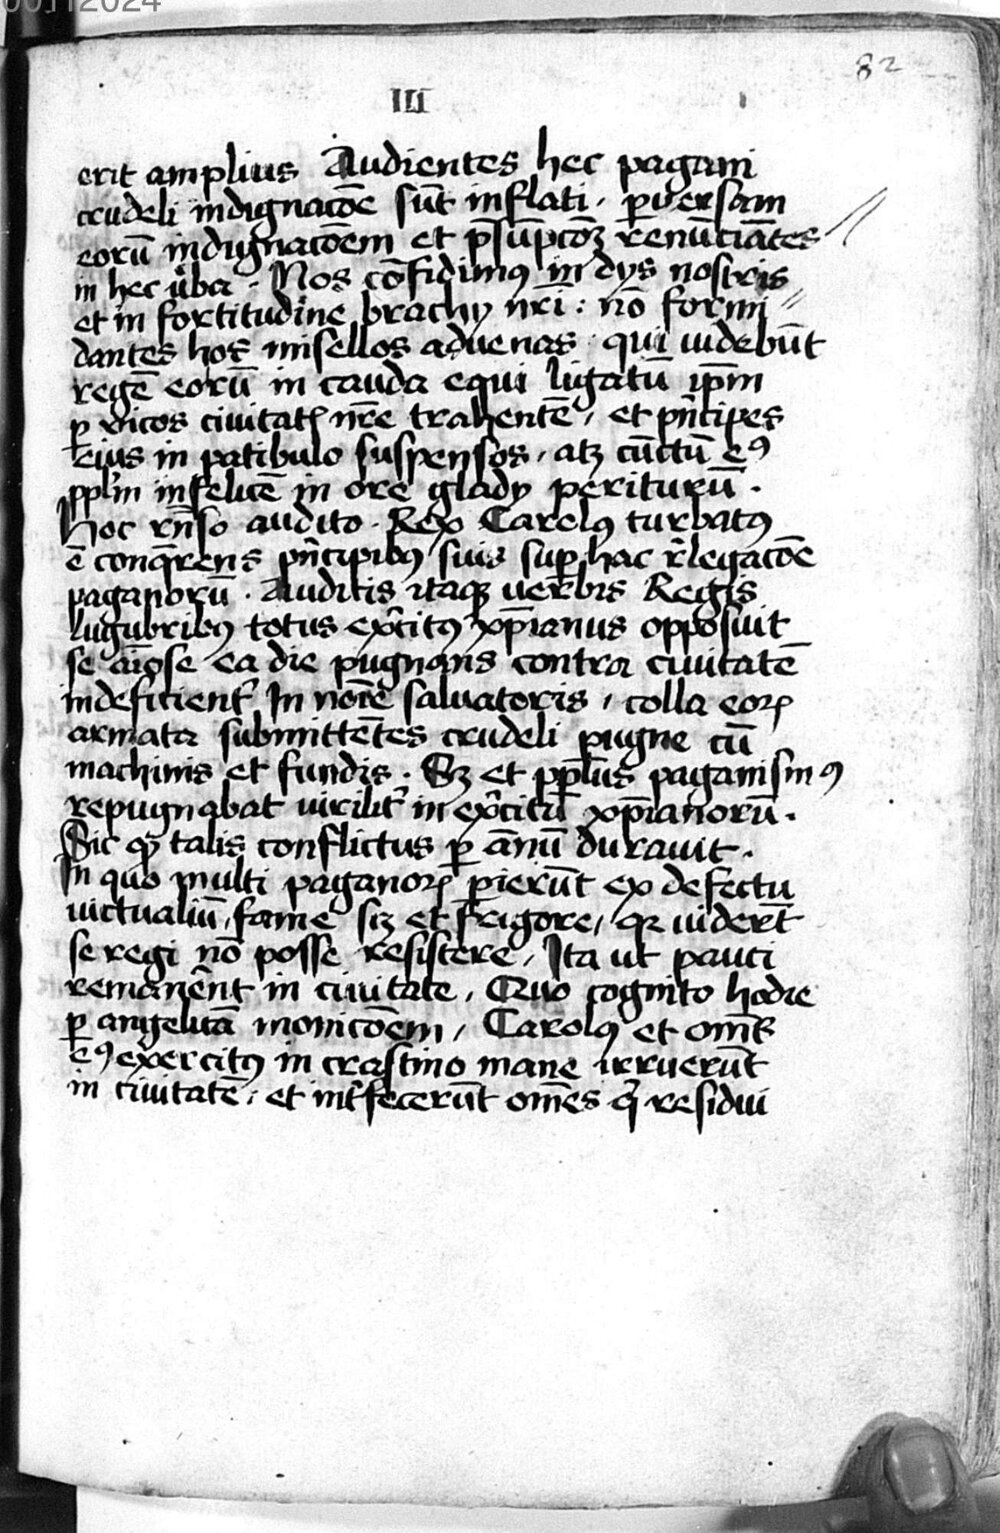 00112024
82
III
erit amplius Audientes hec pagani
crudeli indignacōe sūt inflati · ꝑversam
eorū indignacōem et p̄sūpcōꝫ renūciātes
in hec ůba · Nos cōfidimꝰ in dys nostris
et in fortitudine brachy nr̄i : nō formi〃
dantes hos misellos advenas · qui videbūt
regē eorū in cauda equi ligatū ip̄m
ꝑ vicos civitatꝭ nr̄e trahentē / et pn̄cipes
eius in patibulo suspensos · atꝫ cūctū eꝰ
ppl̄m infelicē in ore glady periturū ·
Hoc rn̄so audito · Rex Carolꝰ turbatꝰ
ē conq̄rens pn̄cipibꝰ suis suꝑ hac r̄legacōe
paganorū · Auditis itaqꝫ verbis Regis
lugubribꝰ totus ex̄citꝰ xp̄ianus opposuit
se aīose ea die pugnans contra civitatē
indeficient̛ In noīe salvatoris / colla eoꝝ
armata submittētes crudeli pugne cū
machinis et fundis · Sꝫ et ppl̄us paganismꝰ
repugnabat virilit̛ in ex̄citū xp̄ianorū ·
Sic qꝫ talis conflictus ꝑ annū duravit ·
In quo multi paganoꝝ ꝑierūt ex defectu
victualiū fame siꝫ et frigore / qꝛ viderūt
se regi nō posse resistere / Ita ut pauci
remanēnt in civitate / Quo cognito hodie
ꝑ angelicā monicōem / Carolꝰ et om̄ꝭ
eꝰ exercitꝰ in crastino mane irruerūt
in civitatē / et int̛fecerūt om̄es q̛ residui